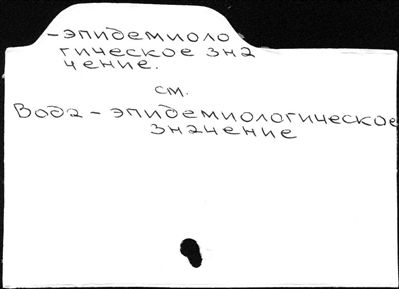 -эпидемиоло
гическое зна
чение.
см.
Вода - эпидемиологическое
значение